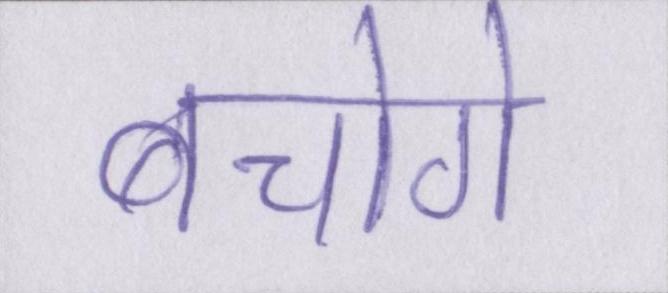 बचोगे